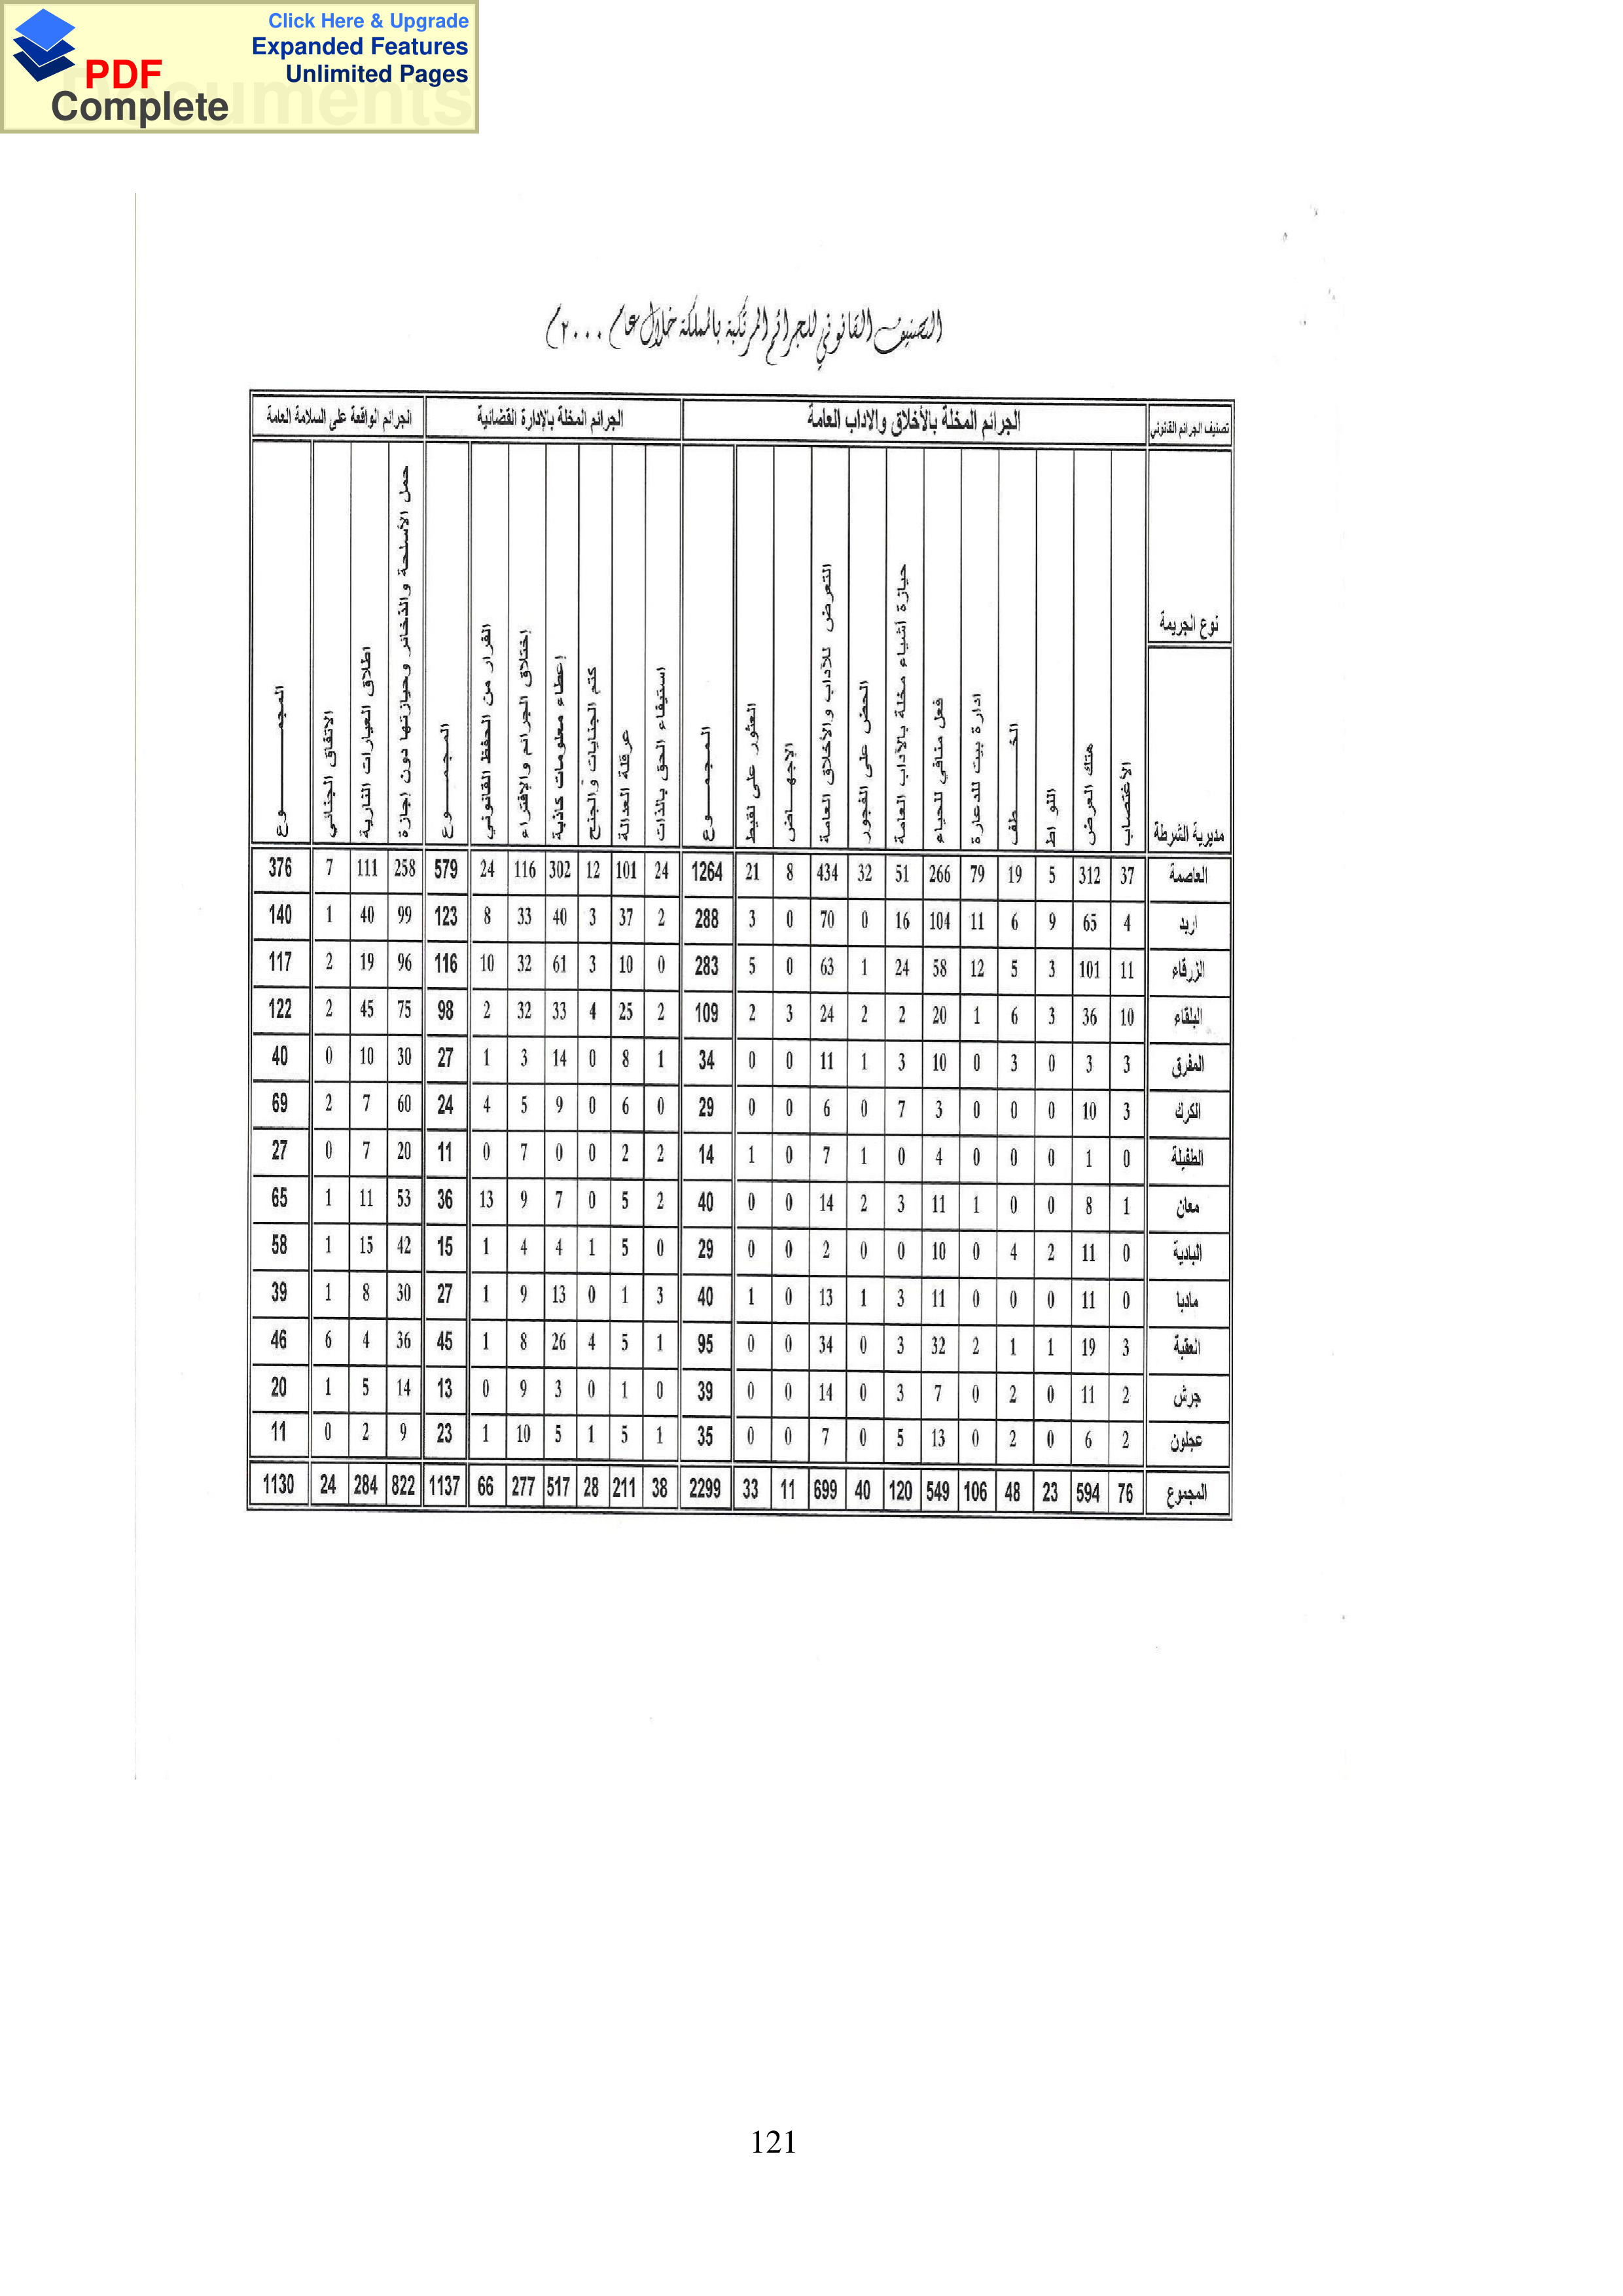 Click Here & Upgrade
Expanded Features
Unlimited Pages
PDF
Complete
Documents
التصنيف القانوني للجرائم المرتكبة بالمملكة خلال عام (٢٠٠٠)
تصنيف الجرائم القانوني الجرائم المخلة بالأخلاق والاداب العامة الجرائم المخلة بالإدارة القضائية الجرائم الواقعة على السلامة العامة
نوع الجريمة
مديرية الشرطة الأغتصاب هتك العرض اللواط الخـــطف ادارة بيت للدعارة فعل منافي للحياء حيازة أشياء مخلة بالآداب العامة الحض على الفجور التعرض للآداب والأخلاق العامة الإجهـاض العثور على لقيط المجمـــوع استيفاء الحق بالذات عرقلة العدالة كتم الجنايات والجنح إعطاء معلومات كاذبة إختلاق الجرائم والإفتراء الفرار من الحفظ القانوني المجمـــوع حمل الأسلحة والذخائر وحيازتها دون إجازة اطلاق العيارات النارية الاتفاق الجنائي المجمـــوع
العاصمة 37 312 5 19 79 266 51 32 434 8 21 1264 24 101 12 302 116 24 579 258 111 7 376
اربد 4 65 9 6 11 104 16 0 70 0 3 288 2 37 3 40 33 8 123 99 40 1 140
الزرقاء 11 101 3 5 12 58 24 1 63 0 5 283 0 10 3 61 32 10 116 96 19 2 117
البلقاء 10 36 3 6 1 20 2 2 24 3 2 109 2 25 4 33 32 2 98 75 45 2 122
المفرق 3 3 0 3 0 10 3 1 11 0 0 34 1 8 0 14 3 1 27 30 10 0 40
الكرك 3 10 0 0 0 3 7 0 6 0 0 29 0 6 0 9 5 4 24 60 7 2 69
الطفيلة 0 1 0 0 0 4 0 1 7 0 1 14 2 2 0 0 7 0 11 20 7 0 27
معان 1 8 0 0 1 11 3 2 14 0 0 40 2 5 0 7 9 13 36 53 11 1 65
البادية 0 11 2 4 0 10 0 0 2 0 0 29 0 5 1 4 4 1 15 42 15 1 58
مادبا 0 11 0 0 0 11 3 1 13 0 1 40 3 1 0 13 9 1 27 30 8 1 39
العقبة 3 19 1 1 2 32 3 0 34 0 0 95 1 5 4 26 8 1 45 36 4 6 46
جرش 2 11 0 2 0 7 3 0 14 0 0 39 0 1 0 3 9 0 13 14 5 1 20
عجلون 2 6 0 2 0 13 5 0 7 0 0 35 1 5 1 5 10 1 23 9 2 0 11
المجموع 76 594 23 48 106 549 120 40 699 11 33 2299 38 211 28 517 277 66 1137 822 284 24 1130
121